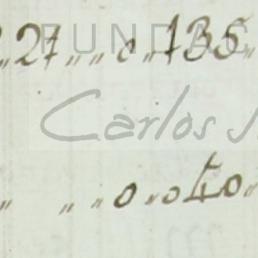 FUNDAC
„27„„0„135„
Carlos J
„ „„0„040„